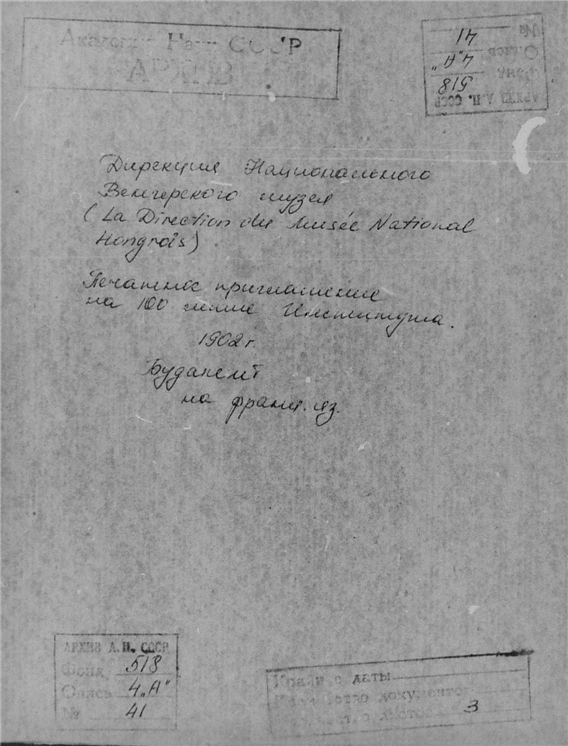 Академия Наук СССР
АРХИВ
№ 41
Опись 4„А"
Фонд 518
АРХИВ А.Н. СССР
Дирекция Национального
Венгерского музея
(La Direction du Musée National
Hongrois)
Печатное приглашение
на 100 летие Института.
1902 г.
Будапешт
на франц. яз.
АРХИВ А.Н. СССР
Фонд 518
Опись 4„А"
№ 41
Крайн е даты
Количество документов
3